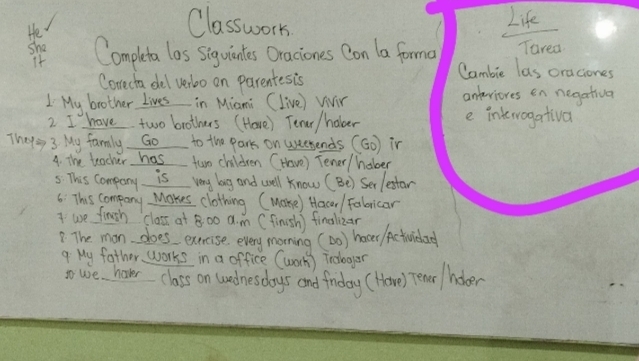 Classwork.
He ✓
She
It
Completa las Siguientes Oraciones Con la forma
Correcta del verbo en parentesis
1. My brother Lives in Miami (Live) Vivir
2. I have two brothers (Have) Tener/haber
They → 3. My family Go to the park on weekends (Go) ir
4. The teacher has two children (Have) Tener/haber
5. This Company is very big and well Know (Be) Ser/estar
6. This Company Makes clothing (Make) Hacer/Fabricar
7. We finish class at 8:00 a.m (finish) finalizar
8. The man does exercise every morning (Do) hacer/Actividad
9. My father works in a office (work) Trabajar
10. We haver class on wednesdays and friday (Have) Tener/haber
Life
Tarea
Cambie las oraciones
anteriores en negativa
e interrogativa